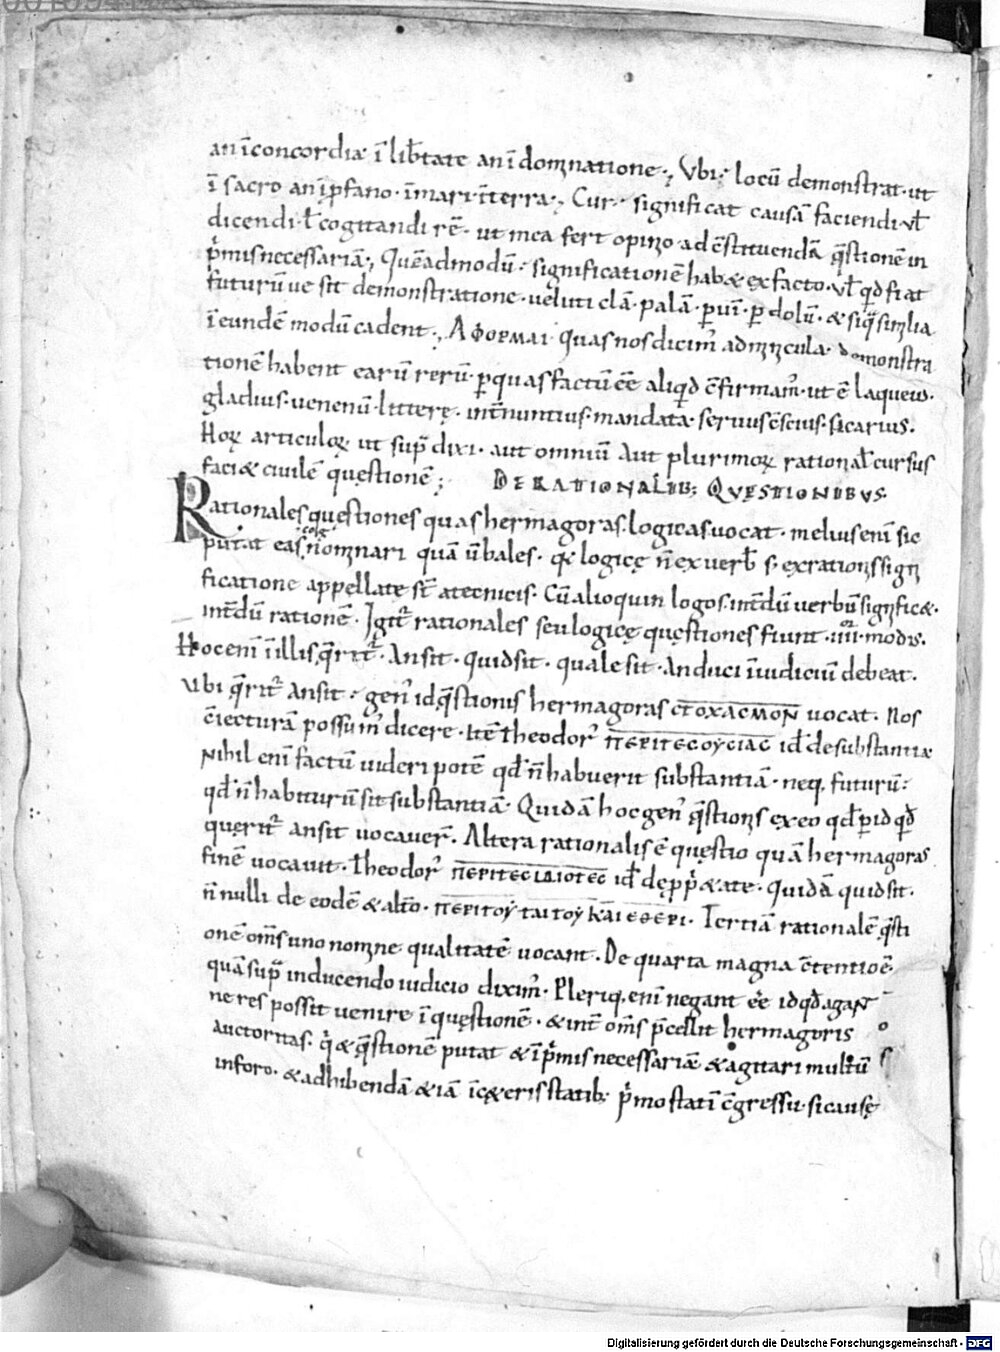 an īconcordiæ ī lib̄tate an ī domınatione·; Vbi·; locū demonstrat· ut
ī sacro an īp̱fano· īmari· īterra·; Cur·; significat causā faciendi· vł
dicendi· ł cogitandi rē· ut mea fert opinio· ad c̄stituendā q̄stionē in
p̍mis necessariā·; Quēadmodū·; significationē hab& ex facto· vł qd̄ fiat
futurū ue sit demonstratione· veluti clā· palā· p̱ uī· p̱ dolū· & siq̄ similia
ī eundē modū cadent·; ΑΦΟΡΜΑΙ· Quas nos dicim̉ adminicula· demonstra
tionē habent earū rerū· p̱ quas factū eē aliqd̄ c̄firmam̉· ut ē laqueus·
gladius· venenū· litterę· int̄nuntius· mandata· seruus c̄scius· sicarius·
Hoꝝ articuloꝝ ut sup̄ dixi· aut omniū aut plurimoꝝ rational̄ cursus
faci& ciuilē quęstionē·; DE RATIONALIB; QVESTIONIBVS·
Rationales quęstiones quas hermagoras logicas vocat· melius enī sic
putat eas nominari quā ūbales· qd̄ logicę n̄ ex verb̄ s; ex rationis signi
ficatione appellatę st̄ a tecnicis· Cū alioquin logos· int̄dū verbū signific&·
int̄dū rationē· Igit̉ rationales seu logicę quęstiones fiunt· iiii· modis·
Hoc enī ī illis q̄rit̉· An sit· quid sit· quale sit· an duci ī iudiciū debeat·
Vbi q̄rit̉ an sit· gen̉ id q̄stionis hermagoras CΤΟΧΑCΜΟΝ vocat· Nos
c̄iecturā possum̉ dicere· Itē theodor̉ ΠΕΡΙΤΕCΟΥCΙΑC id̄ de substantia
Nihil enī factū uideri potē qd̄ n̄ habuerit substantiā· neq, futurū·
qd̄ n̄ habiturū sit substantiā· Quidā hoc gen̉ q̄stionis ex eo qd̄ p̱ id qd̄
quęrit̉ an sit vocauer̄· Altera rationalis ē quęstio quā hermagoras
finē vocauit· Theodor̉ ΠΕΡΙΤΕCΙΔΙΟΤΕC id̄ dę pp̍&ate· quidā quid sit·
n̄ nulli de eodē & alt̄o· ΠΕΡΙΤΟΥ ΤΑΙΤΟΥ ΚΑΙ ΕΘΕΡΙ· Tertiā rationalē q̄sti
onē om̄s uno nomine qualitatē vocant· De quarta magna c̄tentio ē·
quā sup̄ inducendo iudicio dixim̉· Pleriq, enī negant eē id qd̄ agan
ne res possit uenire ī quęstionē· & int̄ om̄s p̄cellit hermagoris
auctoritas· q̍ & q̄stionē putat & ī p̍mis necessariā & agitari multū
inforo· & adhibendā & iā īc&eris statib; p̍mo statī c̄gressu· si causę